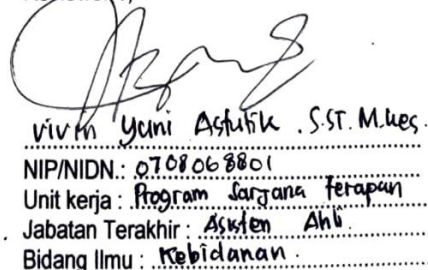 Vivin Yuni Astutik . S.ST. M.Kes.
NIP/NIDN.: 0708068801
Unit kerja : Program Sarjana Terapan
Jabatan Terakhir : Asisten Ahli
Bidang Ilmu : Kebidanan .